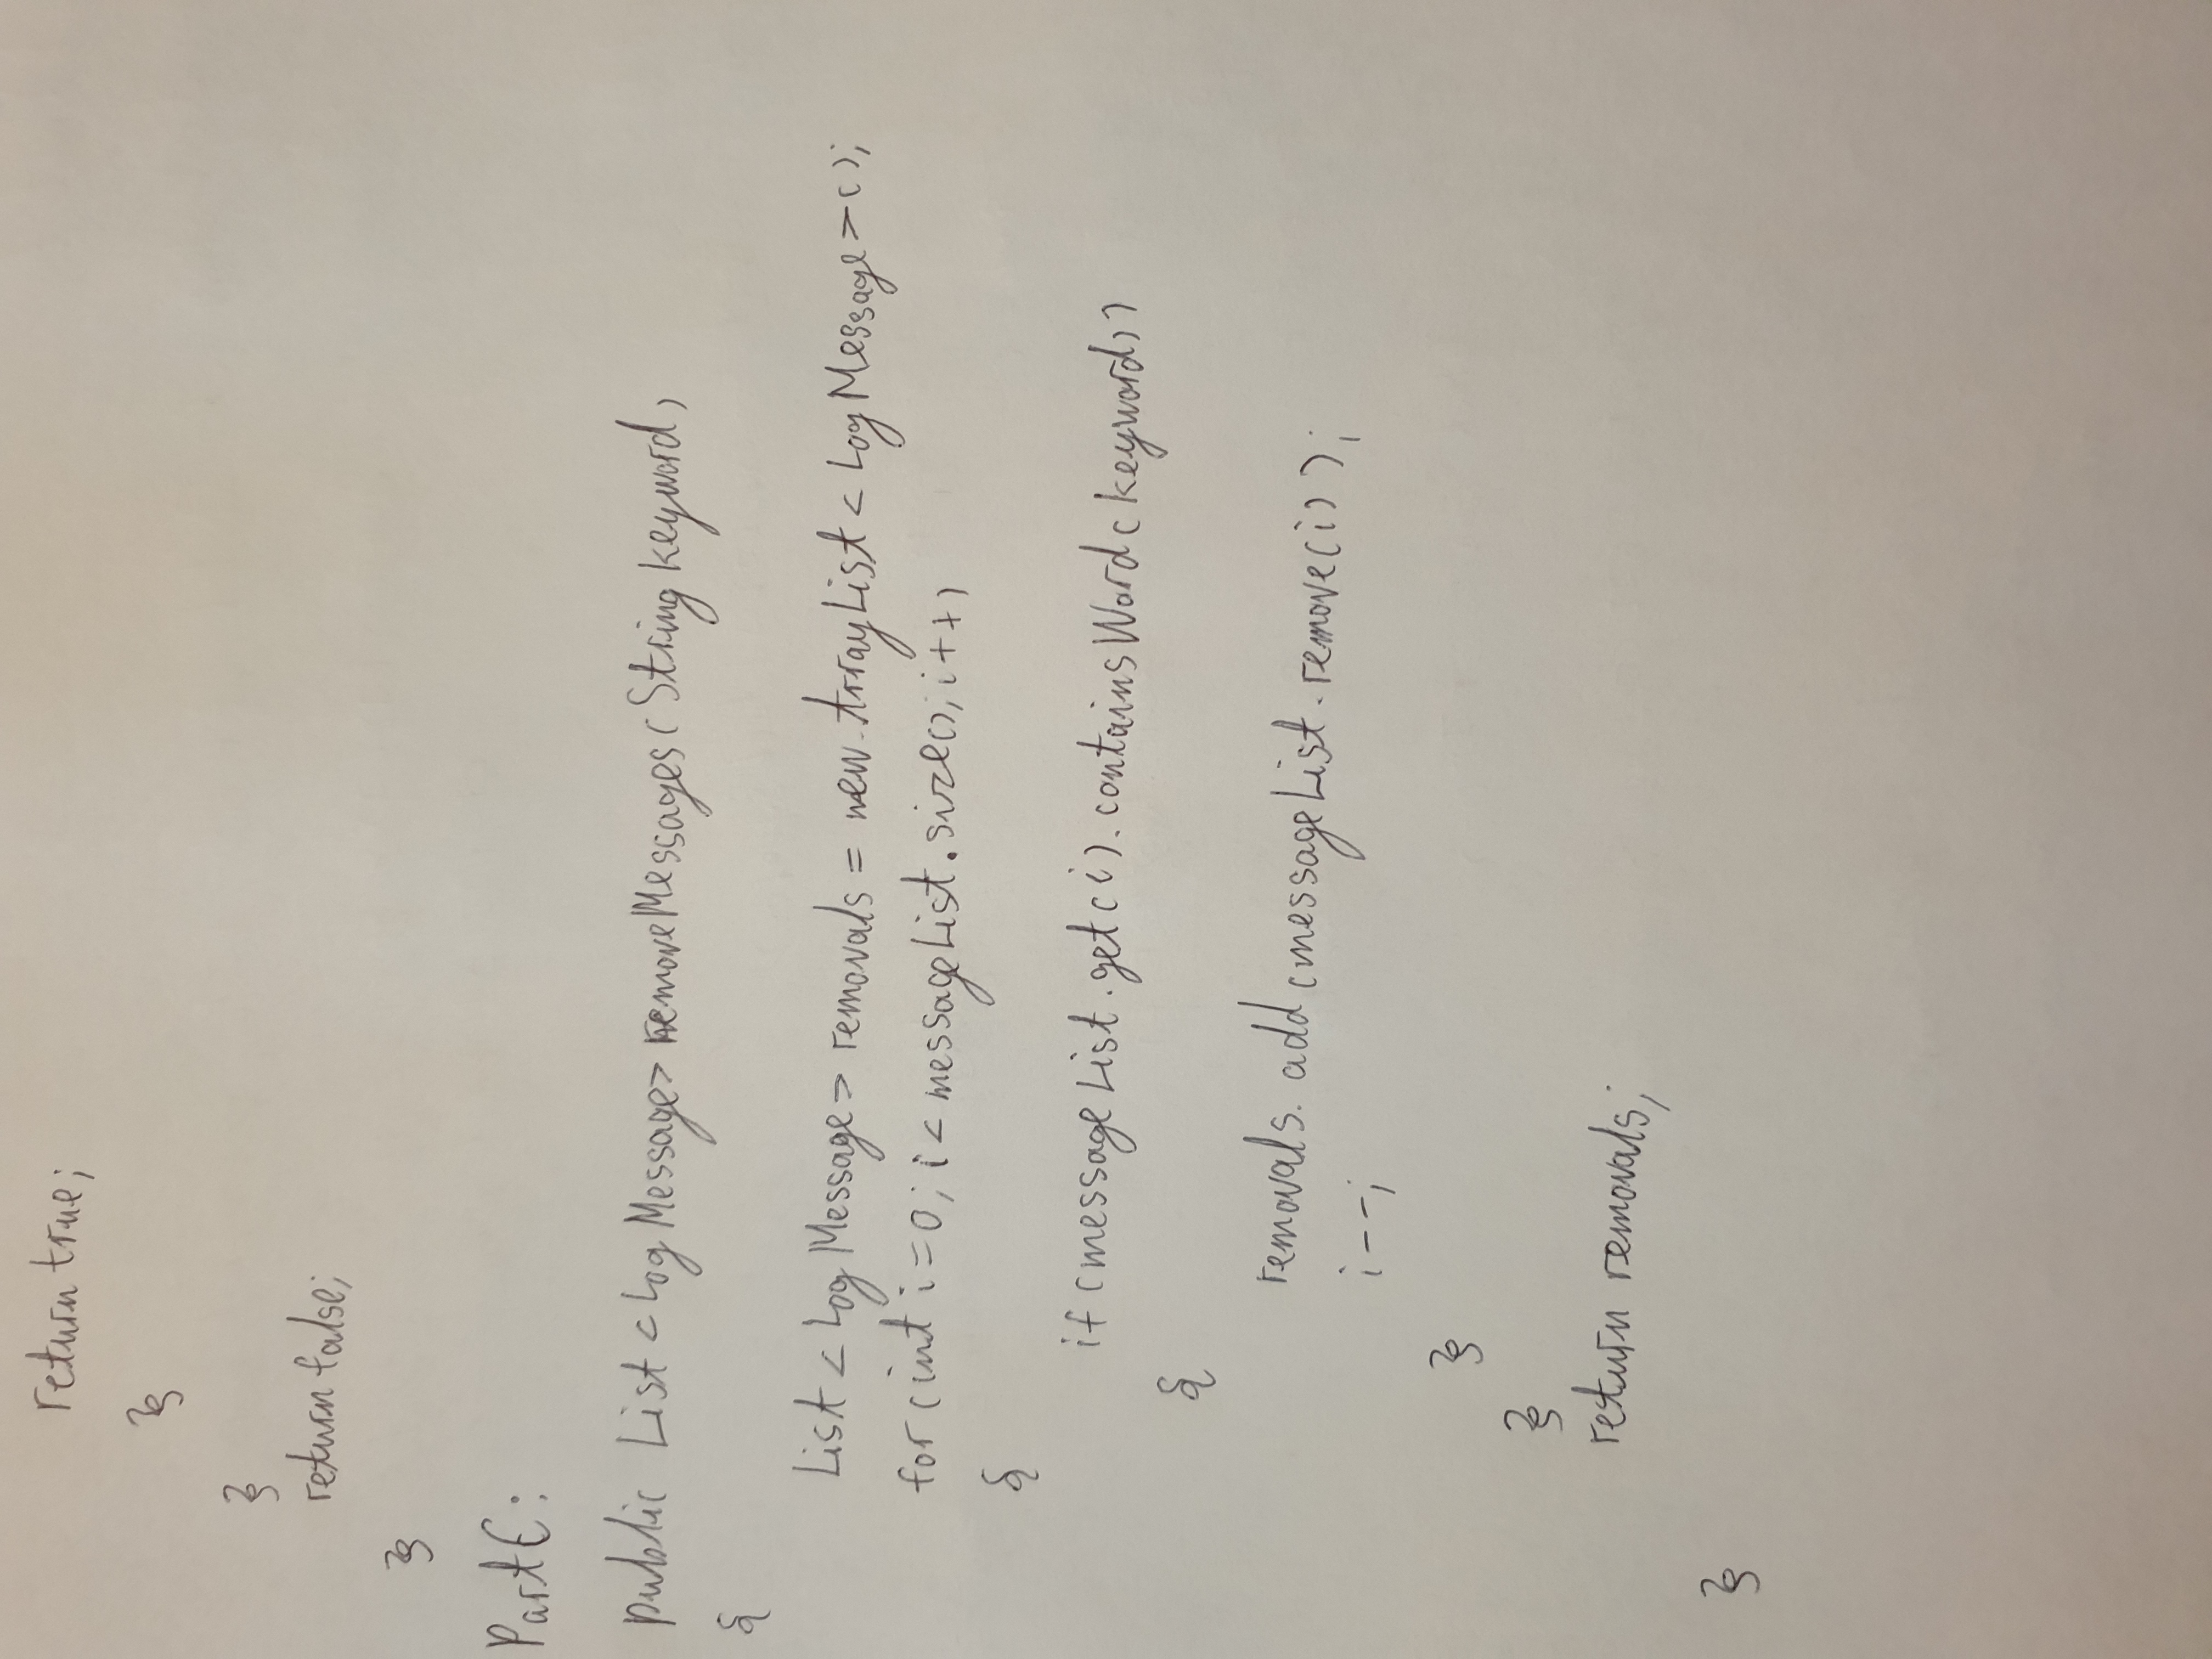 return true;
}
}
return false;
}
Part C:
public List<LogMessage> removeMessages(String keyword)
{
List<LogMessage> removals = new ArrayList<LogMessage>();
for(int i=0; i<messageList.size(); i++)
{
if(messageList.get(i).containsWord(keyword))
{
removals.add(messageList.remove(i));
i--;
}
}
return removals;
}